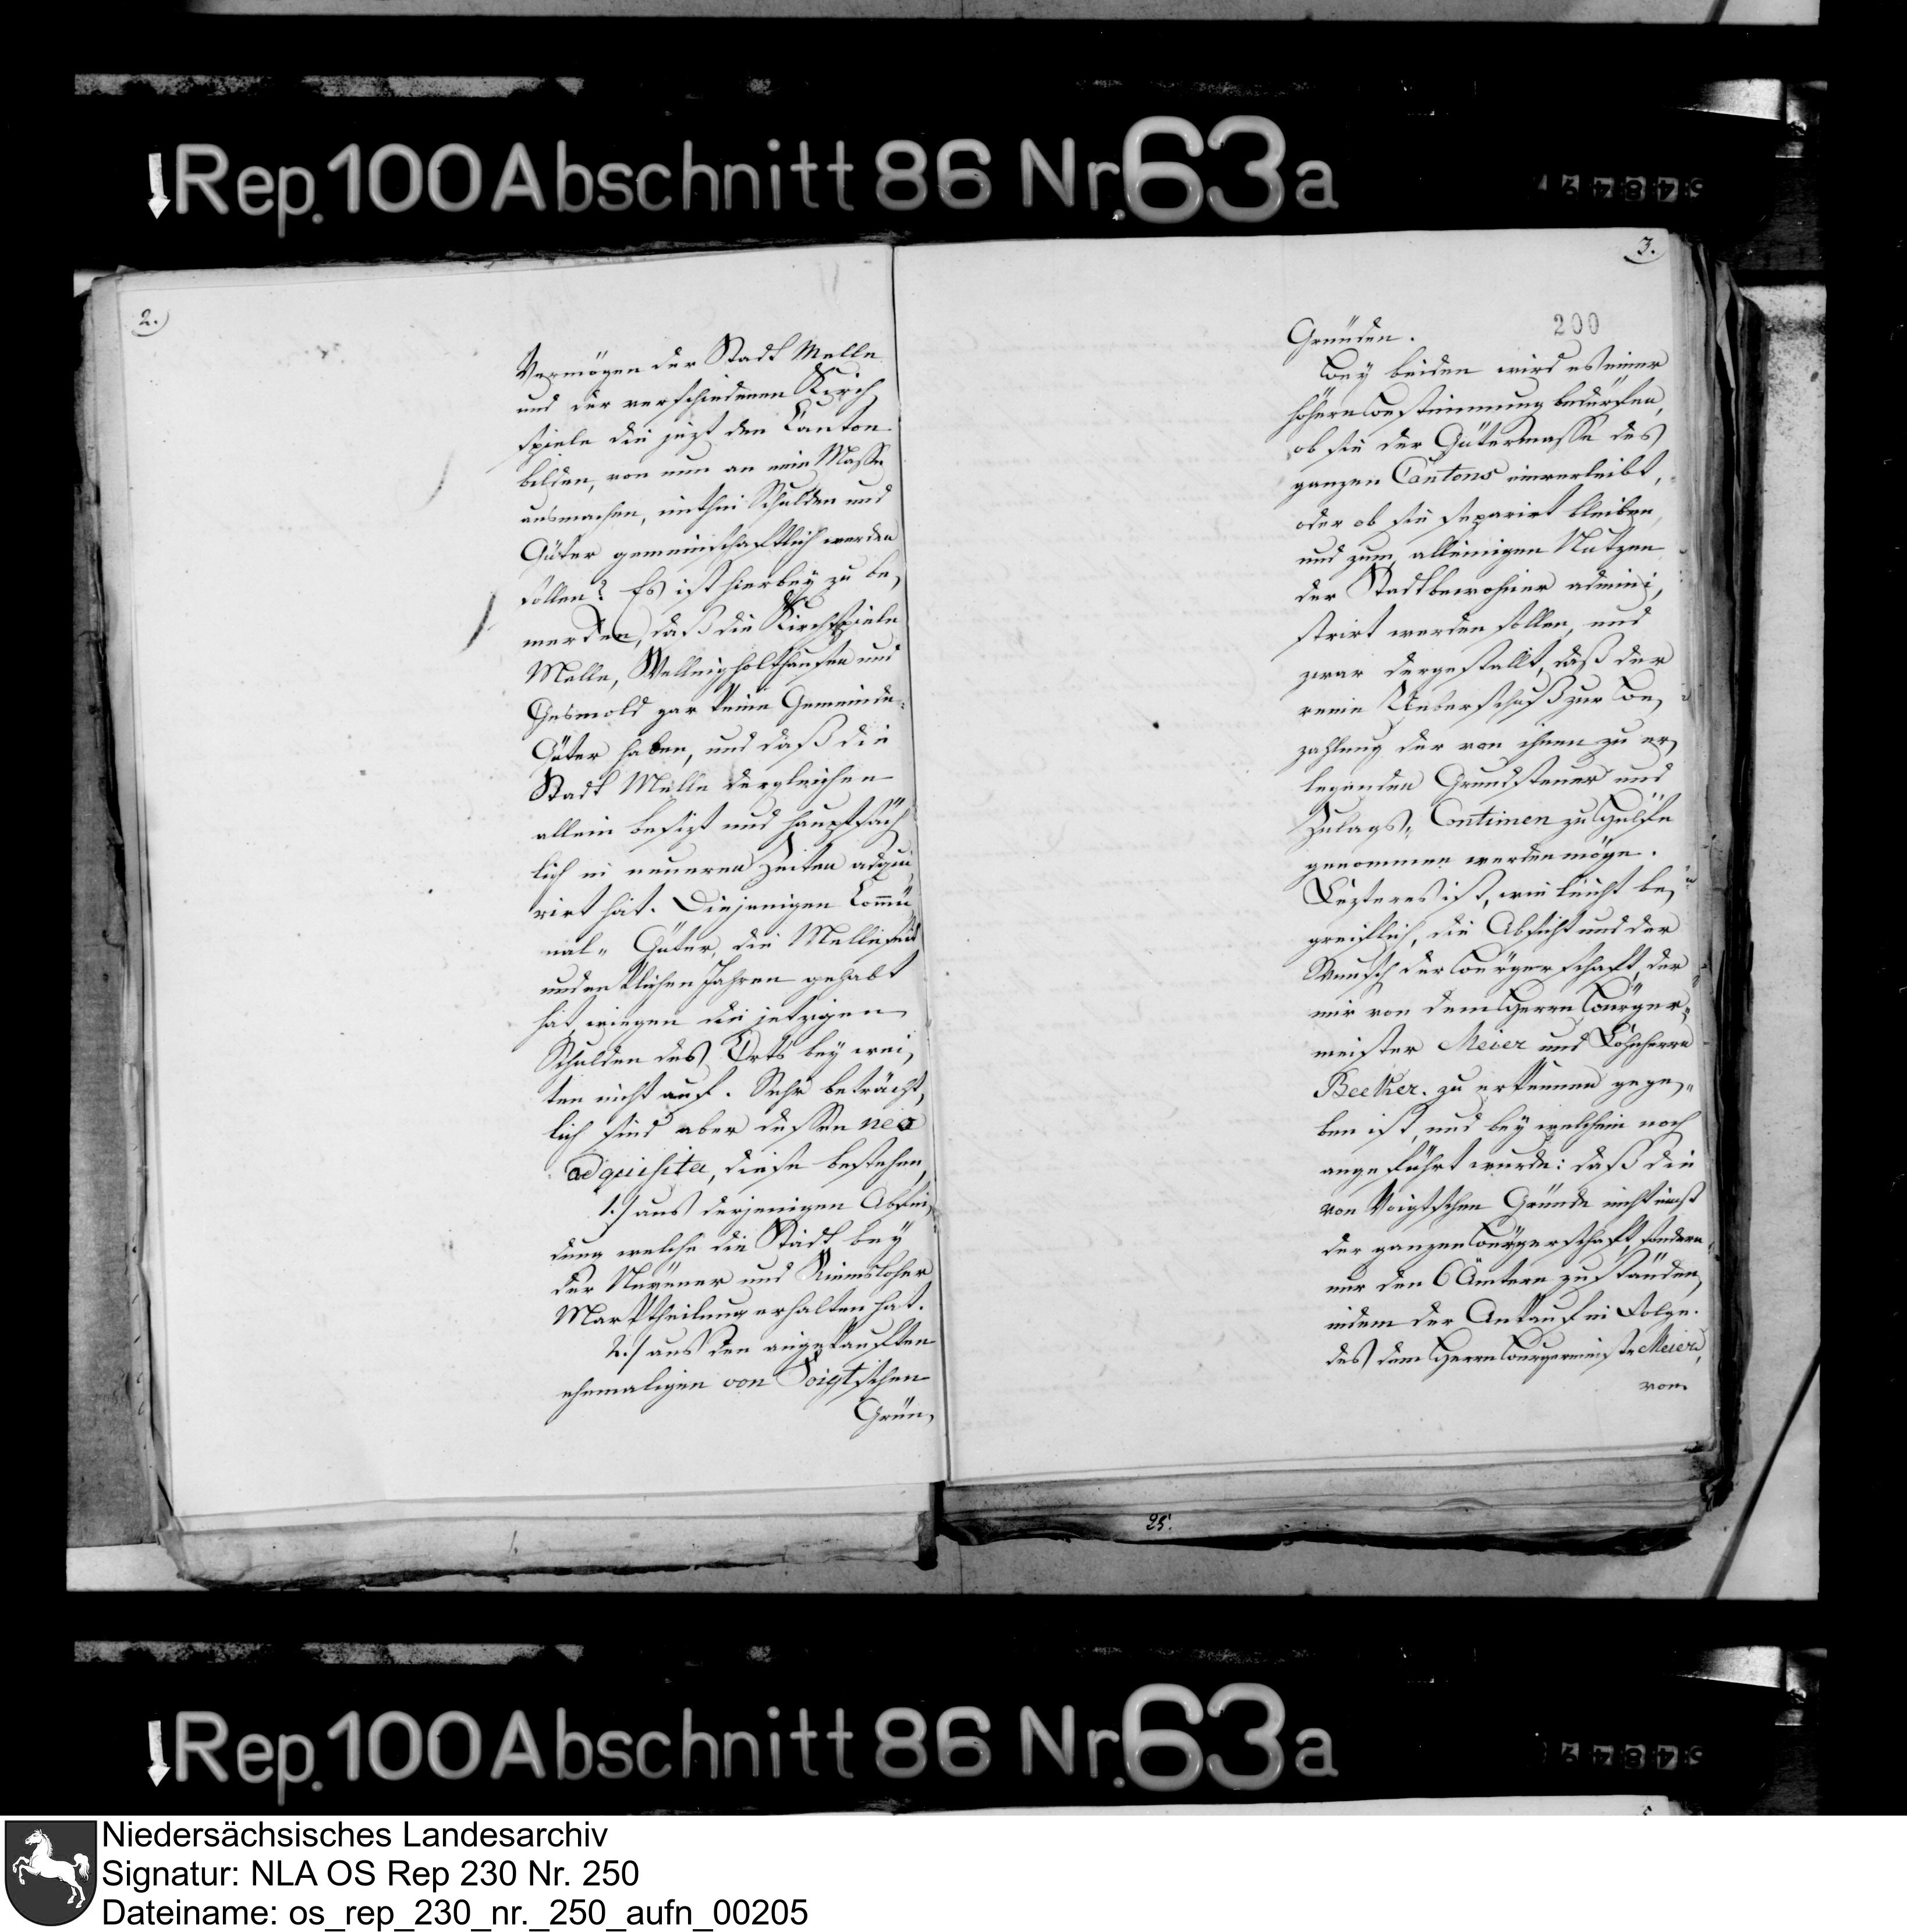 ↓Rep. 100 Abschnitt 86 Nr. 63a
2.)
Vermögen der Stadt Melle
und der verschiedenen Kirch,
spiele die jezt den Canton
bilden, von nun an eine Masse
ausmachen, mithin Schulden und
Güter gemeinschaftlich werden
sollen? Es ist hierbey zu be,
merken, daß die Kirchspiele
Melle, Wellingholthausen und
Gesmold gar keine Gemeinde-
Güter haben, und daß die
Stadt Melle dergleichen
allein besizt und hauptsäch
lich in neueren Zeiten adqui
rirt hat. Diejenigen Commü
nal- Güter, die Melle seit
undenklichen Jahren gehabt
hat, wiegen die jetzigen
Schulden des Orts bey wei,
ten nicht auf. Sehr beträcht,
lich sind aber dessen neo
adquisita, diese bestehen,
1./ aus derjenigen Abfin,
dung welche die Stadt bey
der und Riemsloher
Marktheilung erhalten hat.
2./ aus den angekauften
ehemaligen von Voigtschen
Grün,
3.)
200
Gründen.
Bey beiden wird es einer
höhern Bestimmung bedürfen,
ob sie der Gütermasse des
ganzen Cantons einverleibt,
oder ob sie separirt bleiben,
und zum alleinigen Nutzen
der Stadtbewohner admini,
strirt werden sollen, und
zwar dergestallt, daß der
reine Ueberschuß zur Be,
zahlung der von ihnen zu er,
legenden Grundsteuer und
Zulags- Centimen zu Hülfe
genommen werden möge.
Lezteres ist, wie leicht be,
greiflich, die Absicht und der
Wunsch der Bürgerschaft, der
mir von dem Herrn Bürger-
meister Meier und Lohnherrn
Becker zu erkennen gege,
ben ist, und bey welchem noch
angeführt wurde: daß die
von Voigtschen Gründe nicht einst
der ganzen Bürgerschaft, sondern
nur den 6 Ämtern zuständen,
indem der Ankauf in Folge
des dem Herrn Bürgermeister Meier,
vom
25.
↓Rep. 100 Abschnitt 86 Nr. 63a
Niedersächsisches Landesarchiv
Signatur: NLA OS Rep 230 Nr. 250
Dateiname: os_rep_230_nr._250_aufn_00205